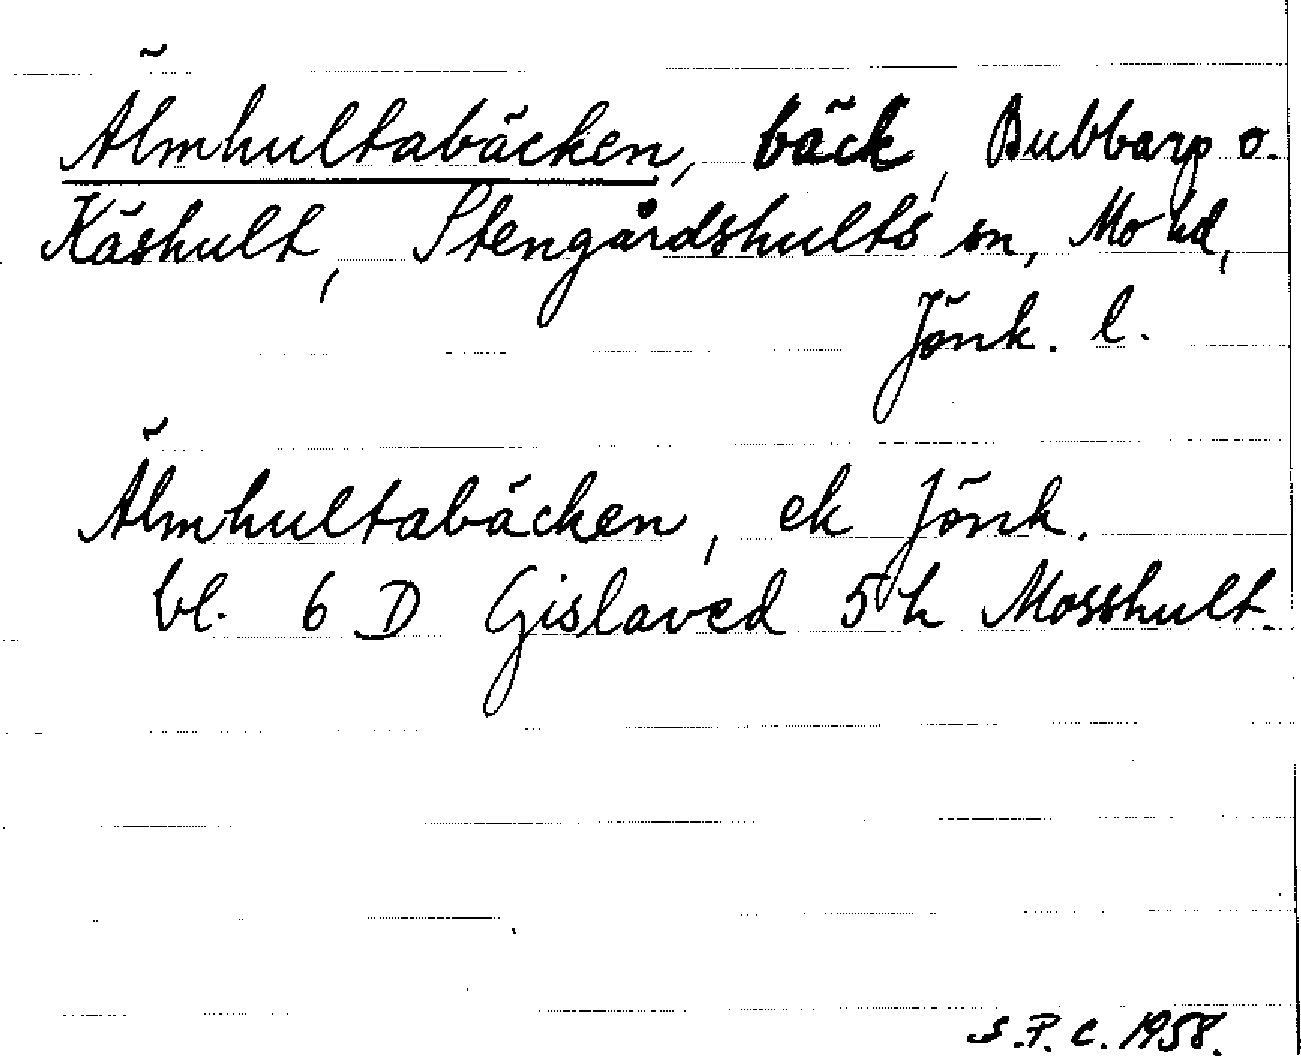 Älmhultabäcken, bäck, Bubbarp o.
Käshult, Stengårdshults sn, Mo hd,
Jönk. l.
Älmhultabäcken, ek Jönk.
bl. 6 D Gislaved 5 h Mosshult.
S.P.C. 1958.